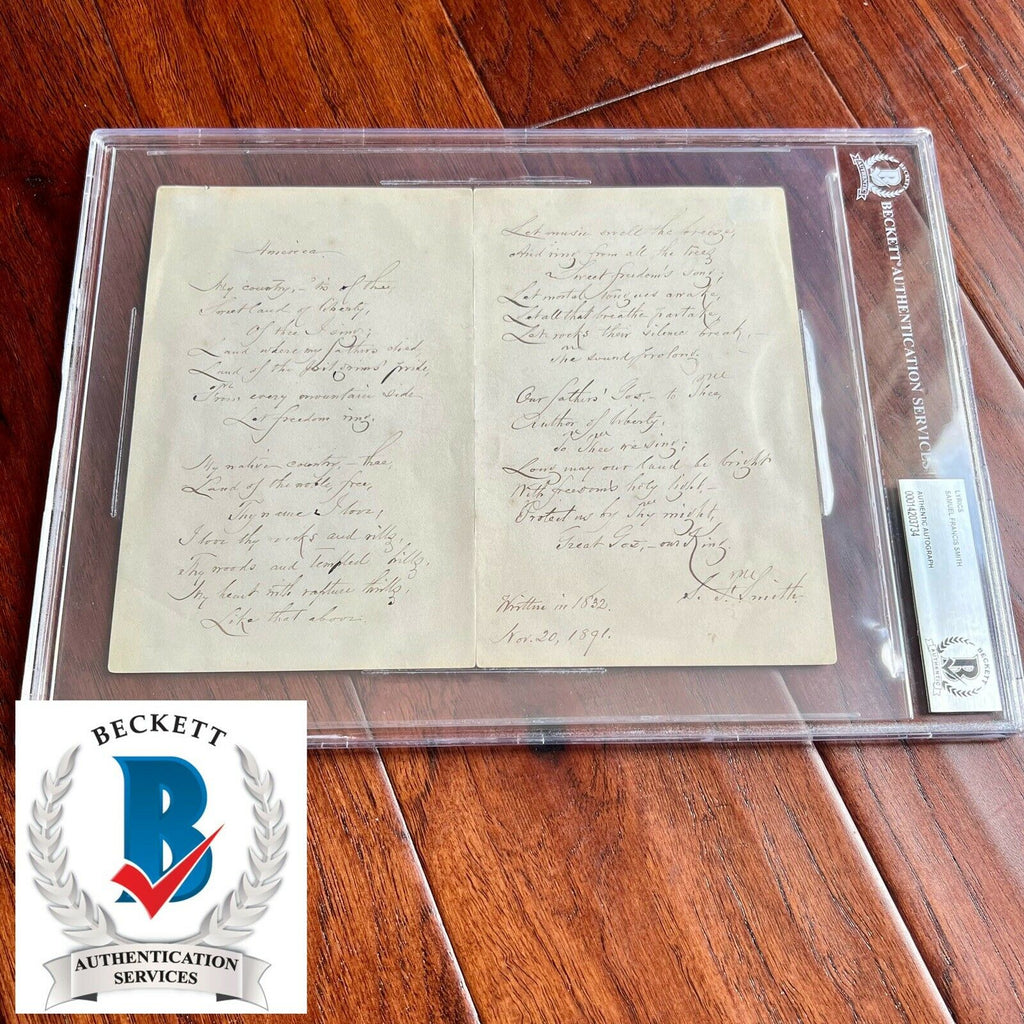 America.
My country, – 'tis of thee,
Sweet land of liberty,
Of thee I sing;
Land where my fathers died,
Land of the pilgrims' pride,
From every mountain side
Let freedom ring.
My native country, – thee,
Land of the noble, free,
Thy name I love;
I love thy rocks and rills,
Thy woods and templed hills,
My heart with rapture thrills,
Like that above.
Let music swell the breeze,
And ring from all the trees
Sweet freedom's song;
Let mortal tongues awake,
Let all that breathe partake,
Let rocks their silence break, –
The sound prolong.
Our fathers' God, – to Thee,
Author of liberty,
To Thee we sing;
Long may our land be bright
With freedom's holy light, –
Protect us by Thy might,
Great God, – our King.
S. F. Smith.
Written in 1832.
Nov. 20, 1891.
BECKETT
B
AUTHENTICATED
BECKETT AUTHENTICATION SERVICES
LYRICS
SAMUEL FRANCIS SMITH
AUTHENTIC AUTOGRAPH
00014203734
BECKETT
B
AUTHENTICATED
BECKETT
B
AUTHENTICATION
SERVICES